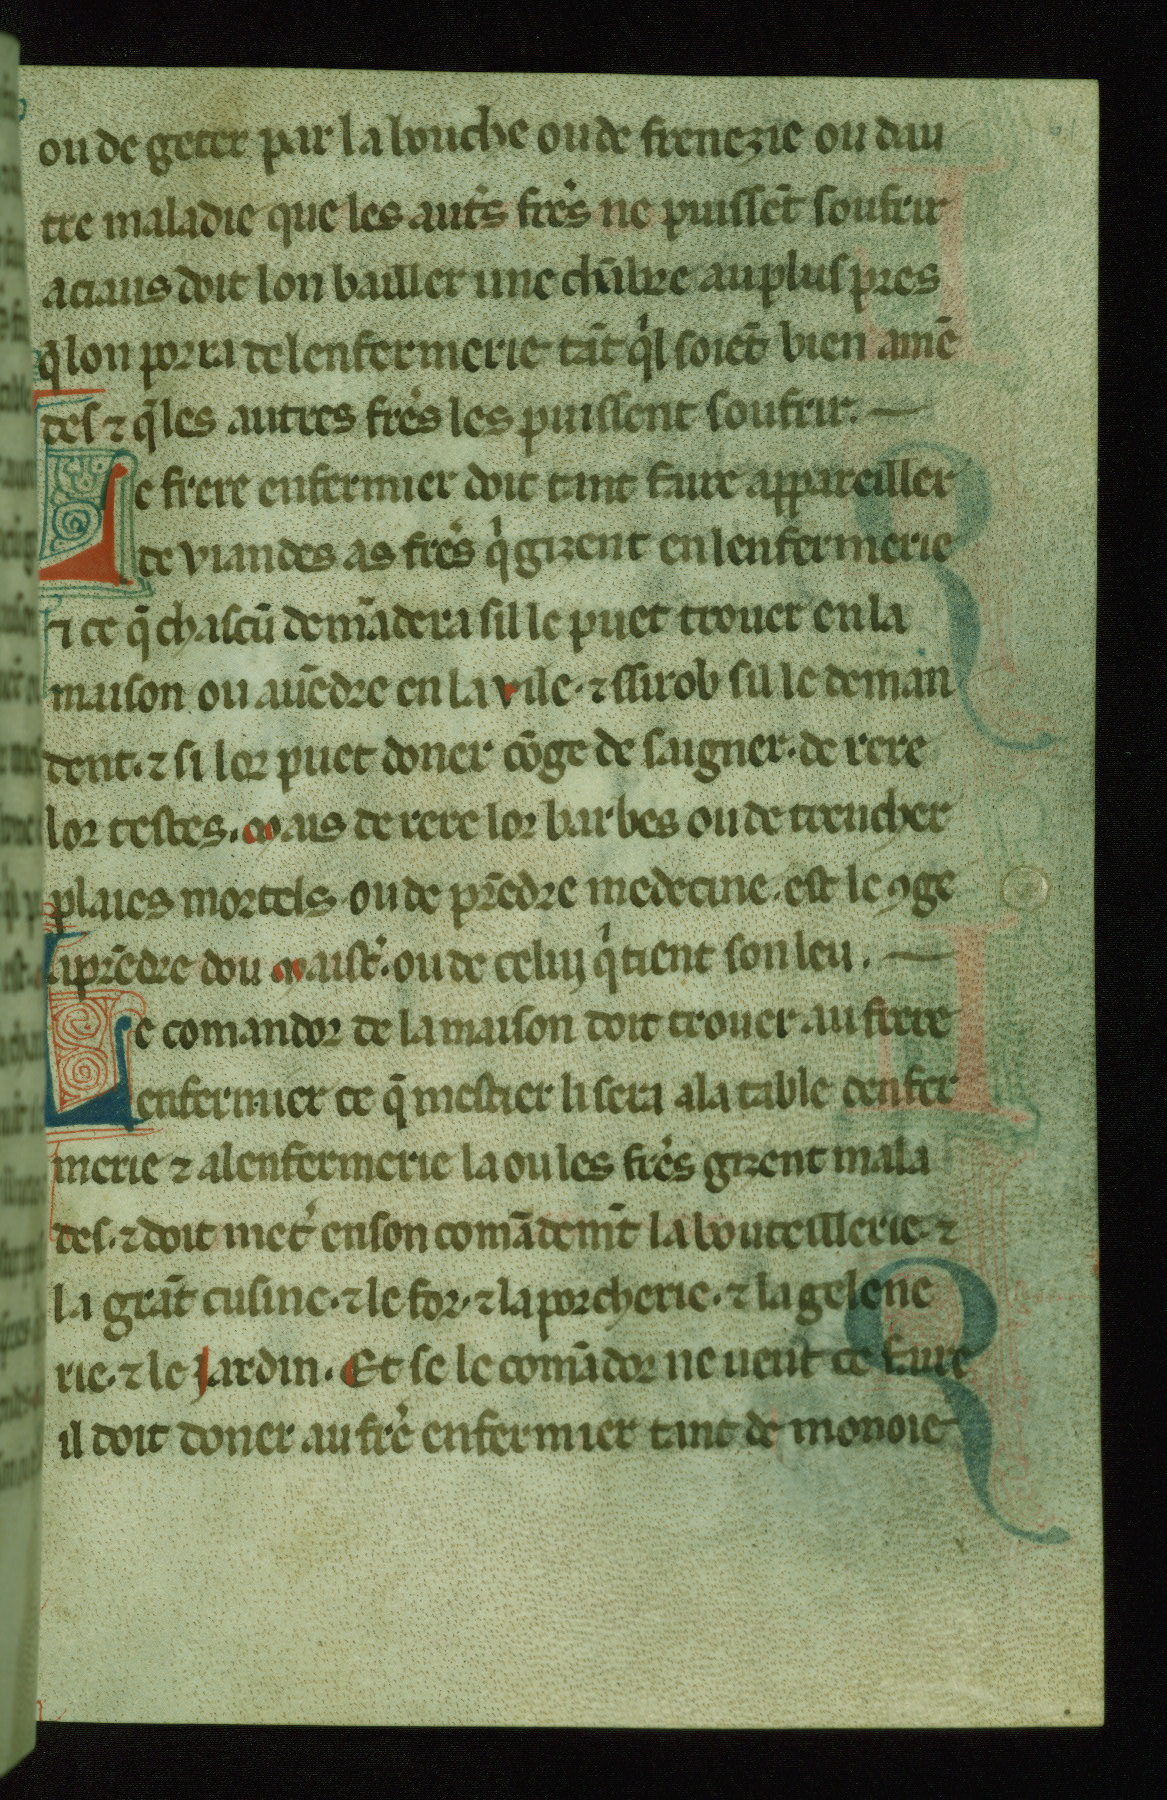 ou de geter par la bouche ou de frenezie ou dau
tre maladie que les aut's fre's ne puissēt soufrir
aciaus doit lon bailler une chābre au plus pres
q̄ lon porra de lenfermerie tāt qⁱl soiēt bien amē
des ⁊ q̄ les autres fre's les puissent soufrir.
Le frere enfermier doit tant faire appareiller
de viandes as fre's qⁱ gizent en lenfermerie
⁊ ce q̄ chascū demādera sil le puet trover en la
maison ou auēdre en la vile· ⁊ ssirob sil le deman
dent· ⁊ si lor puet doner cōge de saigner· de rere
lor testes. Mais de rere lor barbes ou de trencher
plaies mortels ou de prēdre medecine· est le ꝯge
a prēdre dou Maist'· ou de celuy qⁱ tient son leu.
Le comandor de la maison doit trouer au frere
enfermier ce q̄ mestier li sera a la table denfer
merie ⁊ a lenfermerie la ou les fre's gizent mala
des· ⁊ doit met' en son comādemēt la bouteillerie· ⁊
la grāt cusine· ⁊ le for· ⁊ la porcherie· ⁊ la gelene
rie· ⁊ le Jardin. Et se le comādor ne ueut ce faire
il doit doner au fre' enfermier tant de monoie